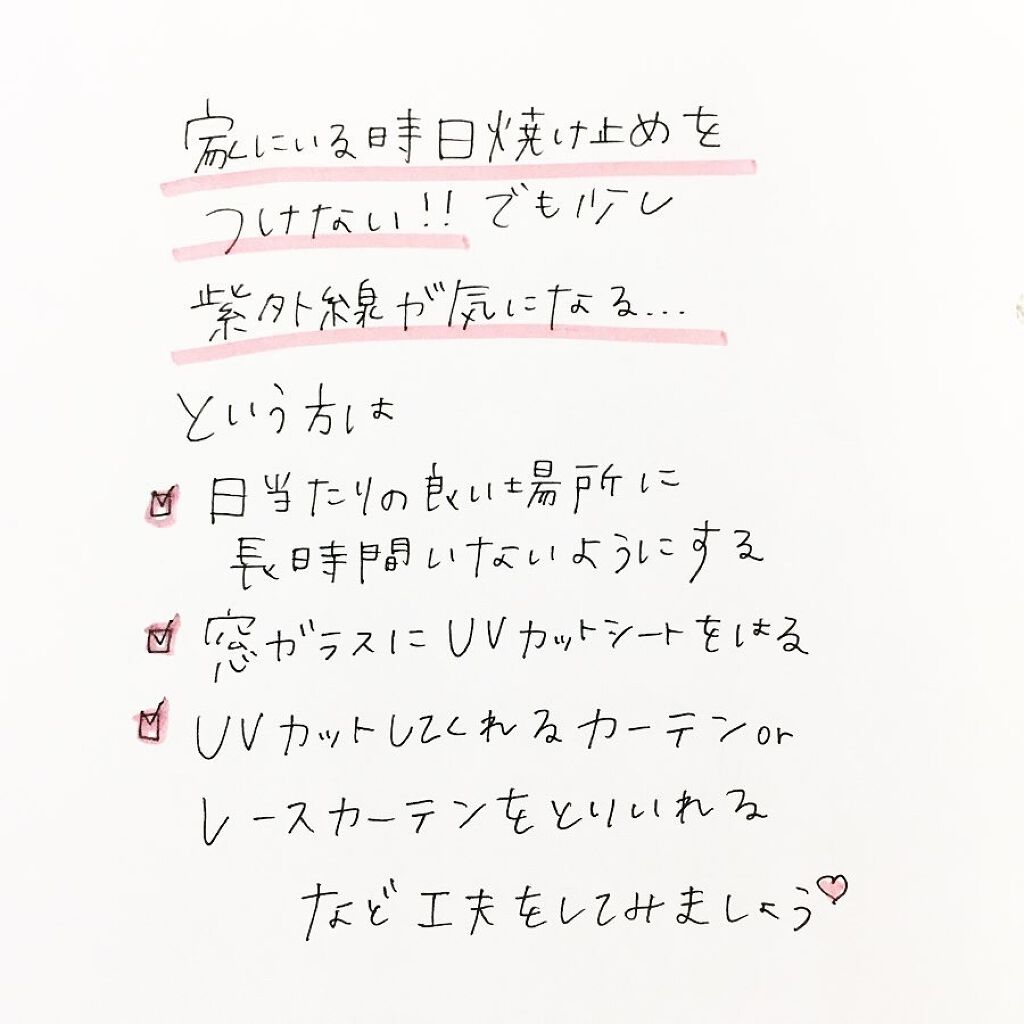 家にいる時日焼け止めを
つけない!! でも少し
紫外線が気になる...
という方は
☑ 日当たりの良い場所に
長時間いないようにする
☑ 窓ガラスにUVカットシートをはる
☑ UVカットしてくれるカーテンor
レースカーテンをとりいれる
など工夫をしてみましょう♡